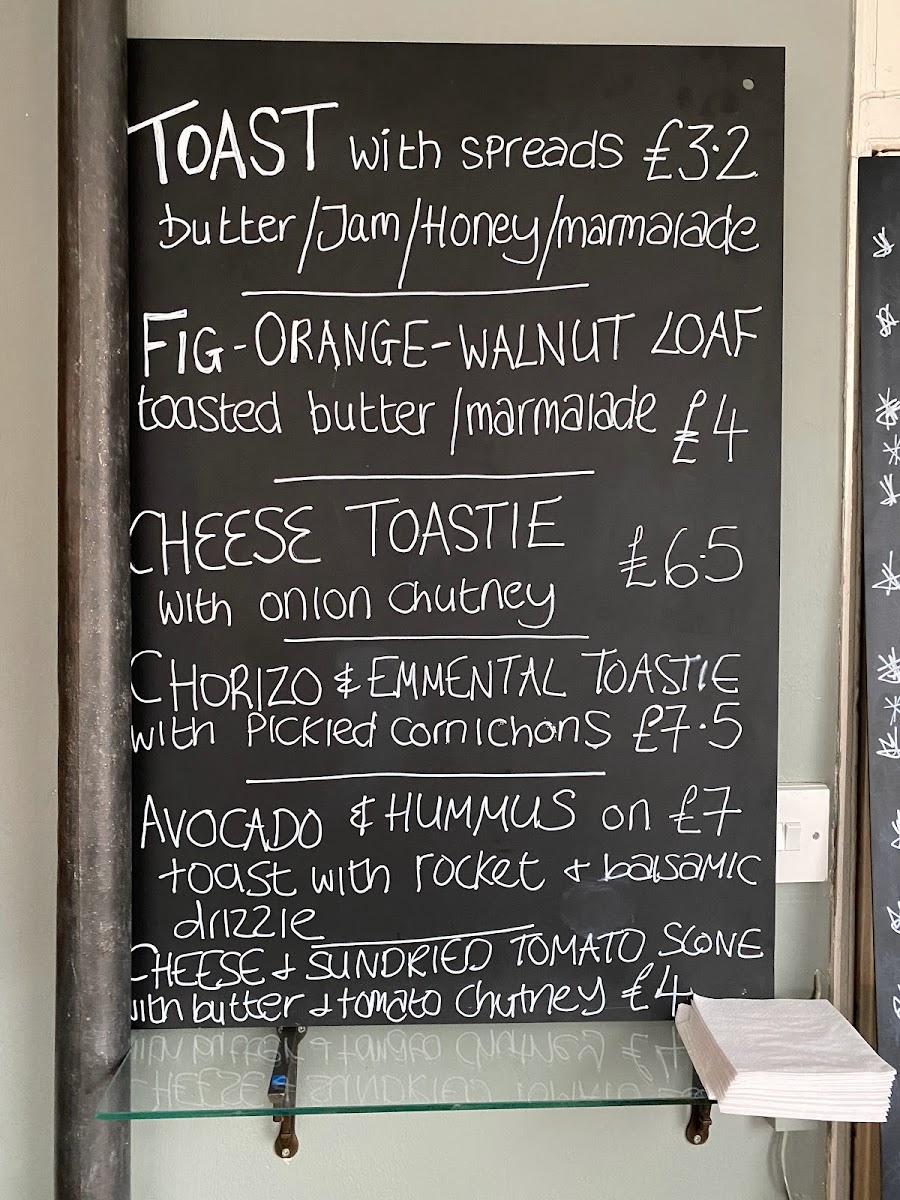 TOAST with spreads £3.2
butter/Jam/Honey/marmalade
FIG-ORANGE-WALNUT LOAF
toasted butter/marmalade £4
CHEESE TOASTIE £6.5
with onion chutney
CHORIZO & EMMENTAL TOASTIE
with pickled cornichons £7.5
AVOCADO & HUMMUS on £7
toast with rocket + balsamic
drizzle
CHEESE & SUNDRIED TOMATO SCONE
with butter & tomato chutney £4